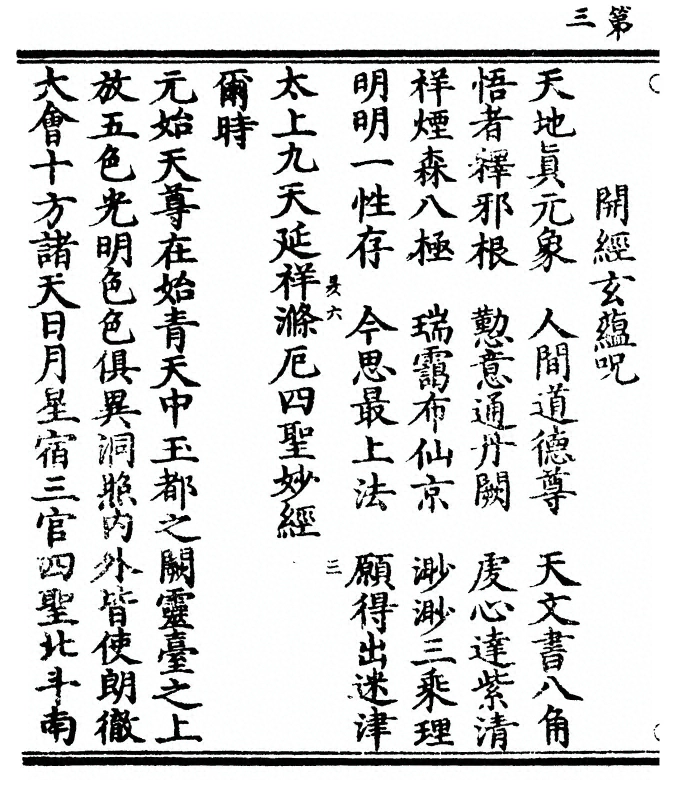 第三
開經玄蘊呪
天地眞元象　人間道德尊　天文書八角
悟者釋邪根　懃意通丹闕　虔心達紫清
祥煙森八極　瑞靄布仙京　渺渺三乘理
明明一性存　今思最上法　願得出迷津
太上九天延祥滌厄四聖妙經
六
三
爾時
元始天尊在始青天中玉都之闕靈臺之上
放五色光明色色俱異洞照內外皆使朗徹
大會十方諸天日月星宿三官四聖北斗南